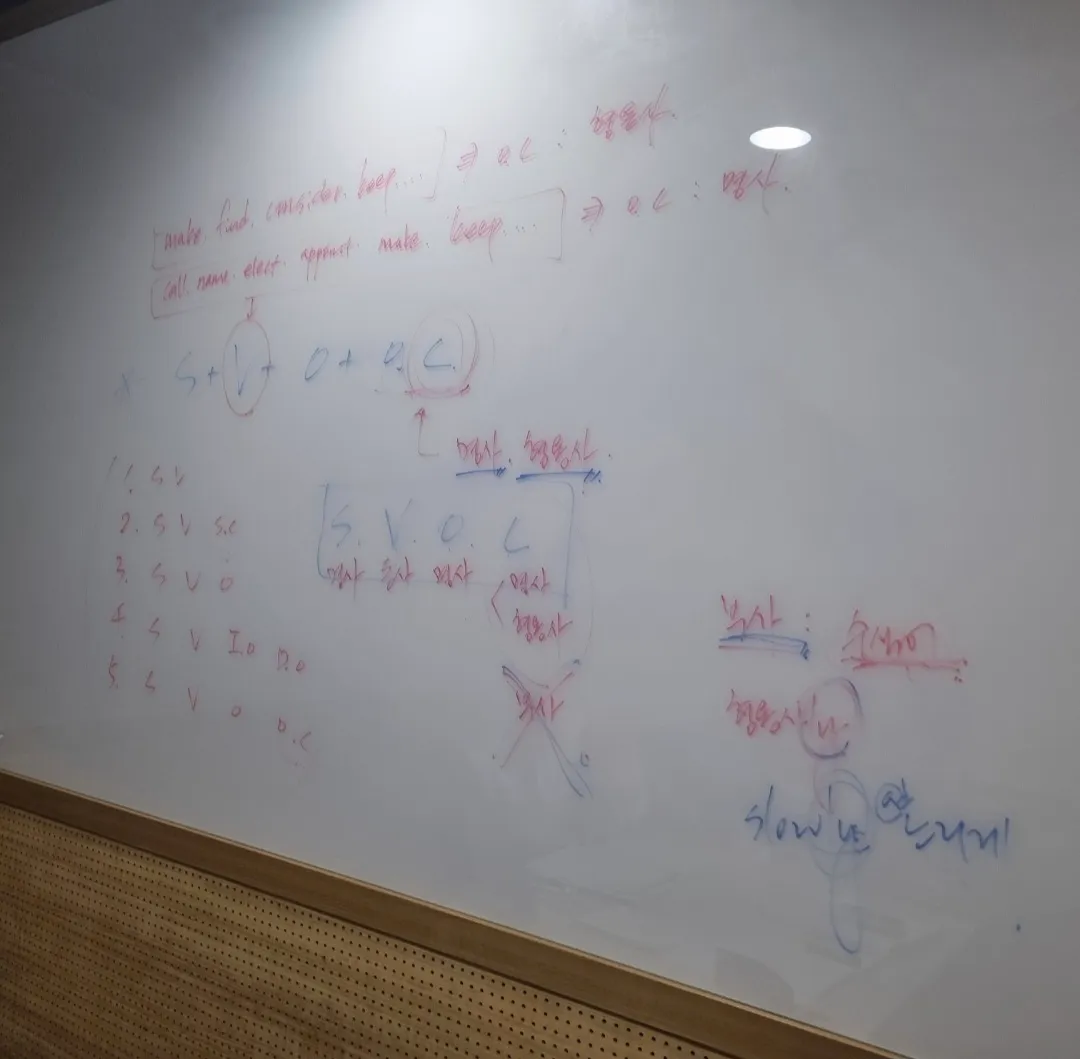 make. find. consider. keep.... ⇒ O.C : 형용사.
call. name. elect. appoint. make. keep.... ⇒ O.C : 명사.
S + V + O + O.C.
명사. 형용사.
1. S V
2. S V S.C
3. S V O
S V I.O D.O
5. S V O O.C
S. V. O. C
명사 동사 명사 명사
형용사
부사
부사 : 수식어
형용사
slow ly 느리게